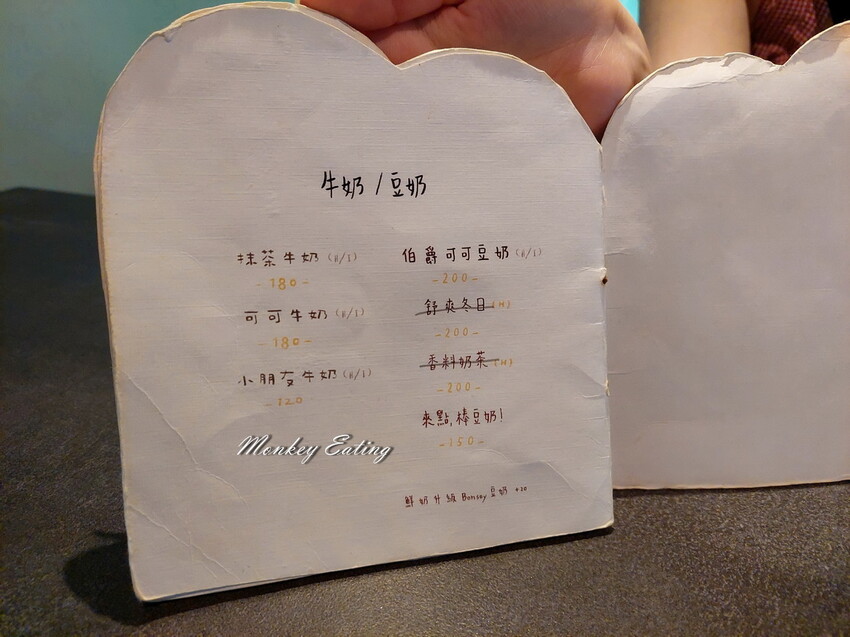 牛奶 / 豆奶
抹茶牛奶 (H/I)
-180-
可可牛奶 (H/I)
-180-
小朋友牛奶 (H/I)
-120
伯爵可可豆奶 (H/I)
-200-
舒爽冬日 (H)
-200-
香料奶茶 (H)
-200-
來點,棒豆奶!
-150-
Monkey Eating
鮮奶升級 Bonsoy 豆奶 +20